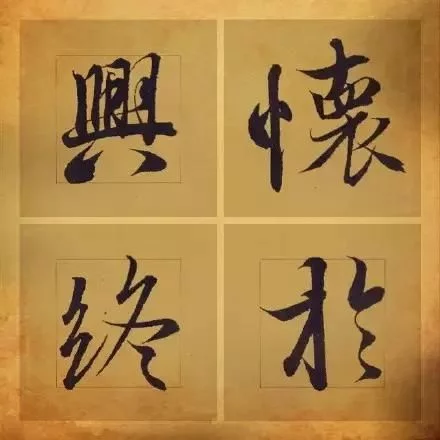 興懷
終於